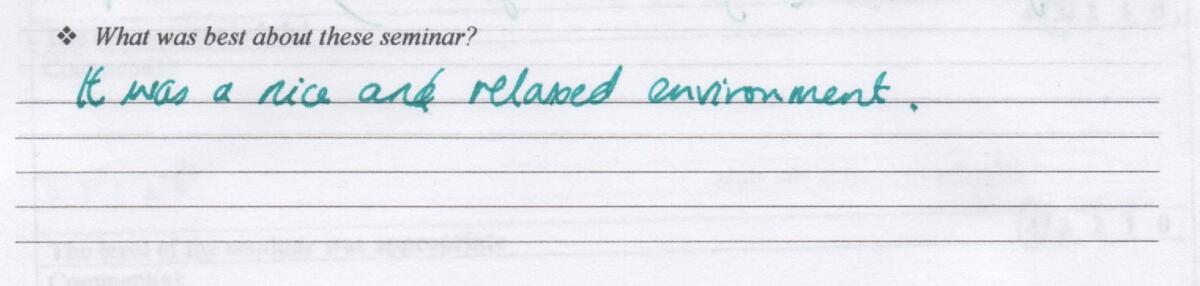 ❖ What was best about these seminar?
It was a nice and relaxed environment.